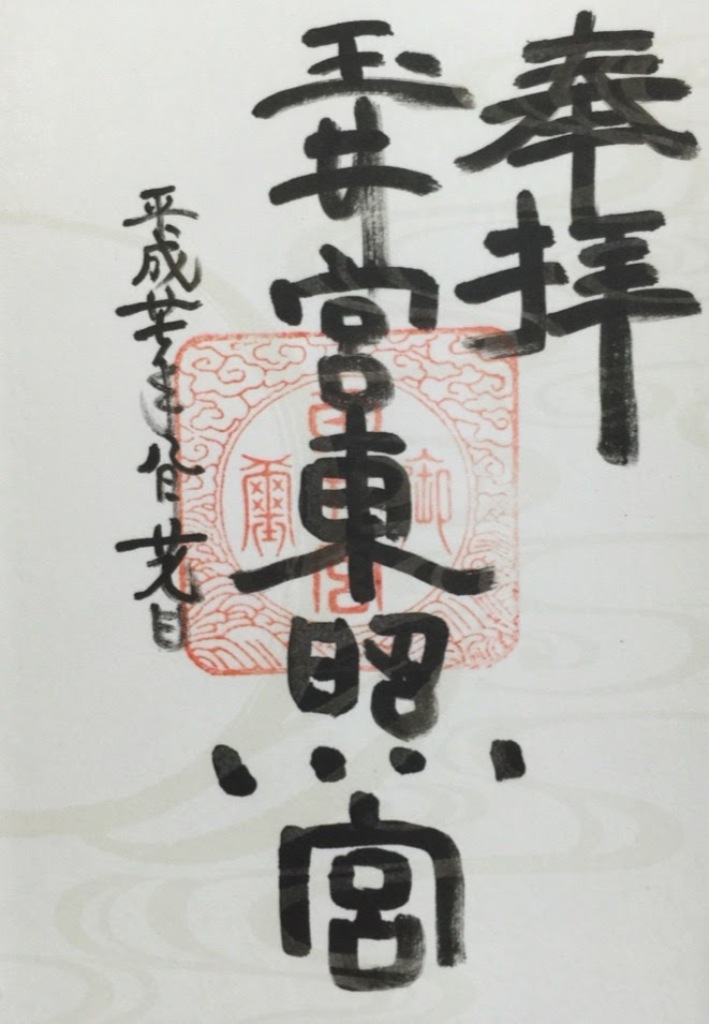 奉拝
玉井宮東照宮
平成廿七年八月廿九日